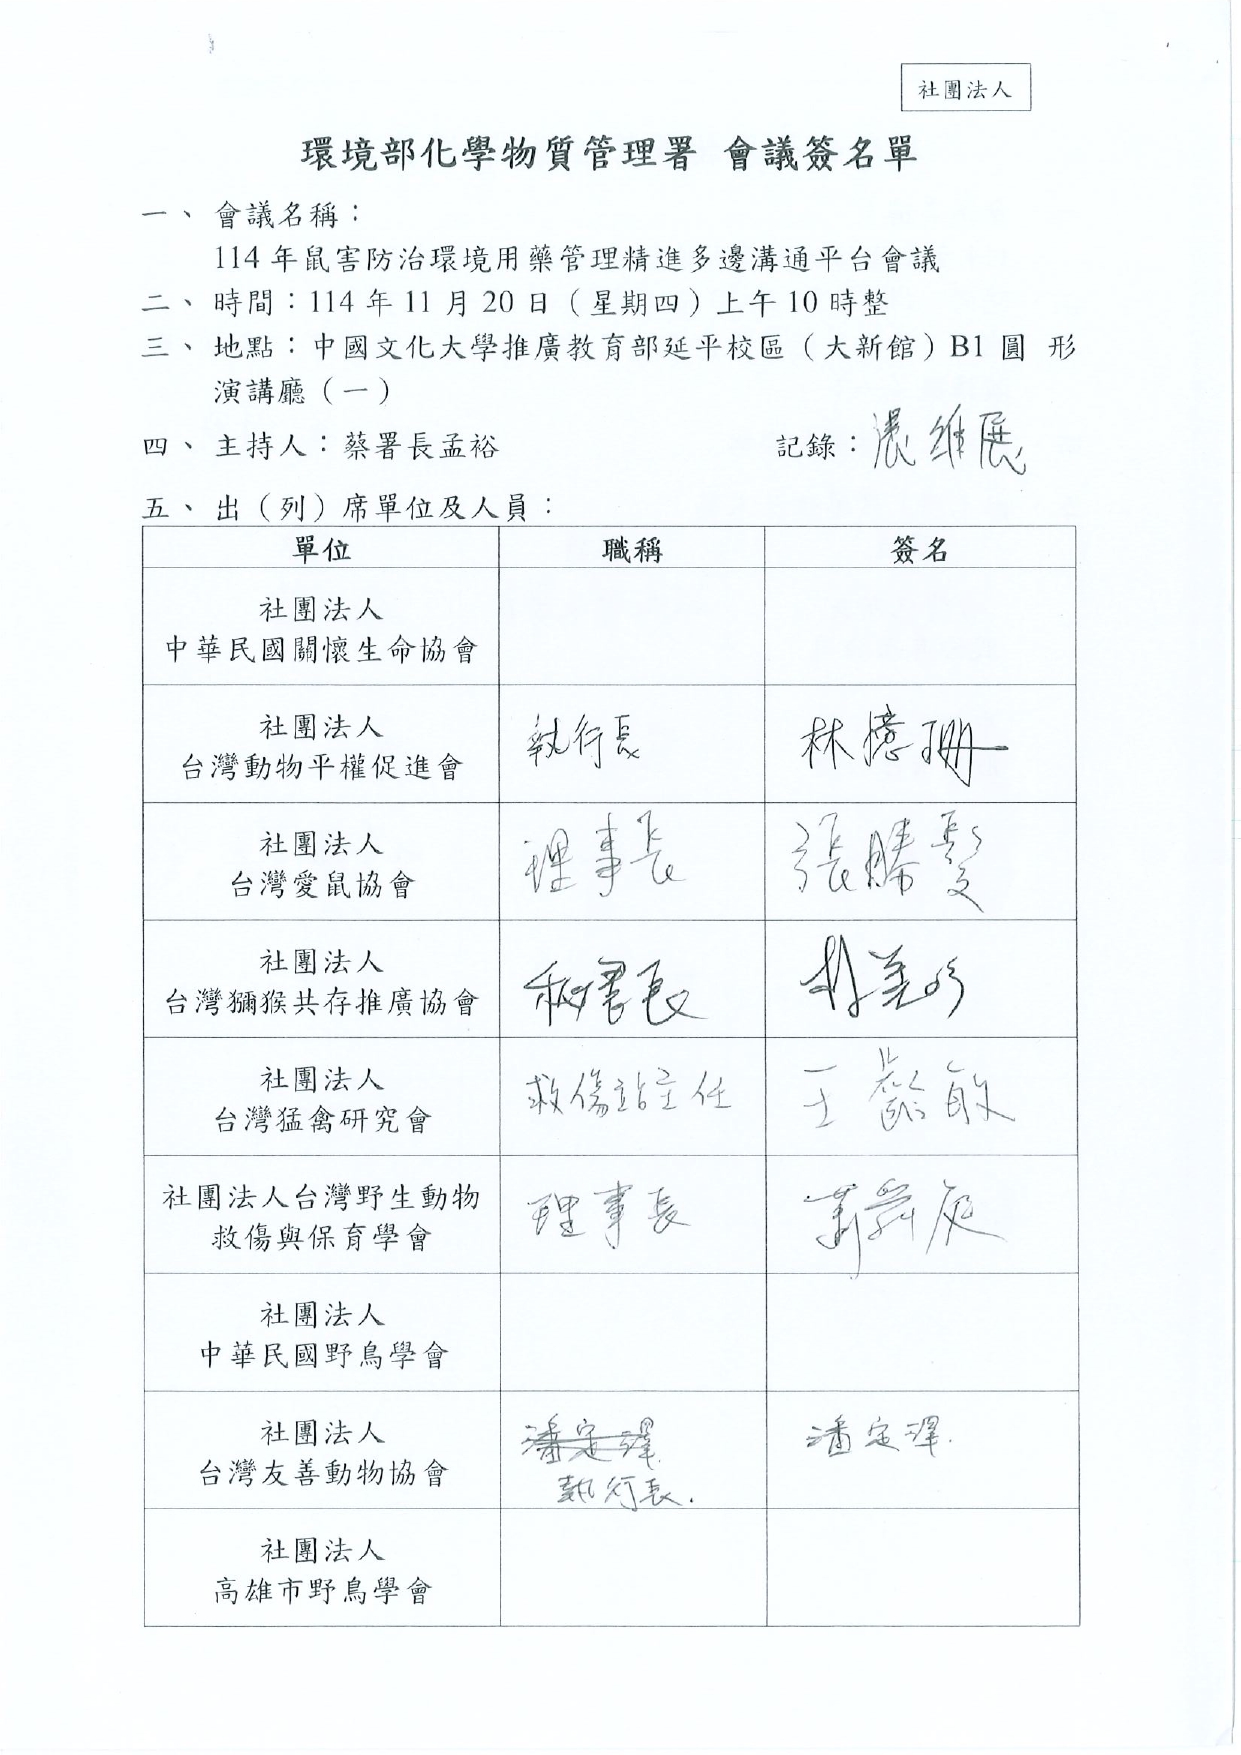 社團法人
環境部化學物質管理署 會議簽名單
一、會議名稱：
114年鼠害防治環境用藥管理精進多邊溝通平台會議
二、時間：114年11月20日（星期四）上午10時整
三、地點：中國文化大學推廣教育部延平校區（大新館）B1 圓 形
演講廳（一）
四、主持人：蔡署長孟裕 記錄：維展
五、出（列）席單位及人員：
單位 職稱 簽名
社團法人
中華民國關懷生命協會
社團法人
台灣動物平權促進會
執行長 林憶珊
社團法人
台灣愛鼠協會
理事長 張勝
社團法人
台灣獼猴共存推廣協會
秘書長 林美吟
社團法人
台灣猛禽研究會
救傷站主任 王齡敏
社團法人台灣野生動物
救傷與保育學會
理事長
社團法人
中華民國野鳥學會
社團法人
台灣友善動物協會
潘定澤 潘定澤.
執行長.
社團法人
高雄市野鳥學會